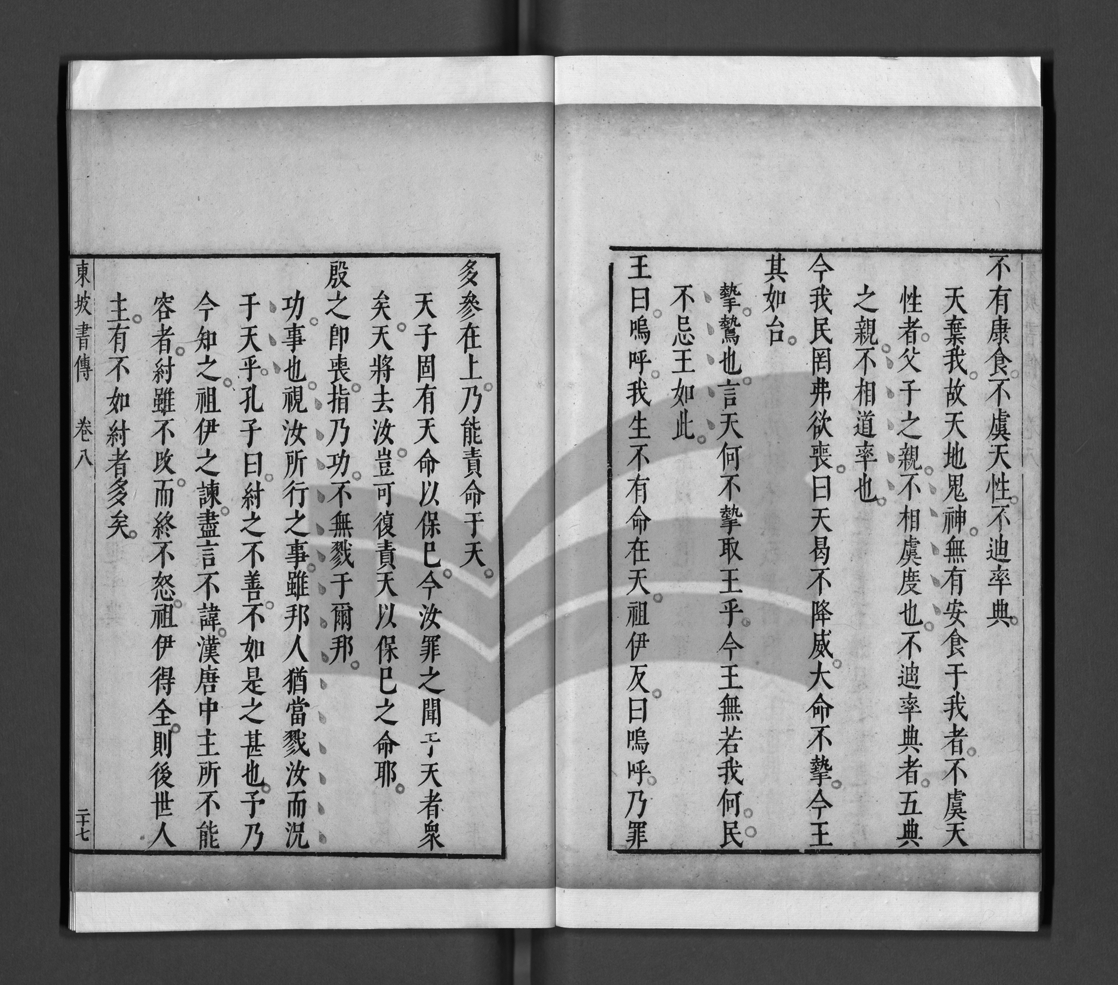 不有康食。不虞天性。不迪率典。
天棄我。故天地鬼神。無有安食于我者。不虞天
性者。父子之親。不相虞度也。不迪率典者。五典
之親。不相道率也。
今我民罔弗欲喪。曰天曷不降威。大命不摯。今王
其如台。
摯鷙也。言天何不摯取王乎。今王無若我何。民
不忌王如此。
王曰。嗚呼。我生不有命在天。祖伊反。曰嗚呼。乃罪
多參在上。乃能責命于天。
天子固有天命以保己。今汝罪之聞于天者衆
矣。天將去汝。豈可復責天以保己之命耶。
殷之卽喪。指乃功。不無戮于爾邦。
功。事也。視汝所行之事。雖邦人猶當戮汝。而況
于天乎。孔子曰。紂之不善。不如是之甚也。予乃
今知之。祖伊之諫。盡言不諱。漢唐中主所不能
容者。紂雖不攺。而終不怒。祖伊得全。則後世人
主有不如紂者多矣。
東坡書傳 卷八 二十七